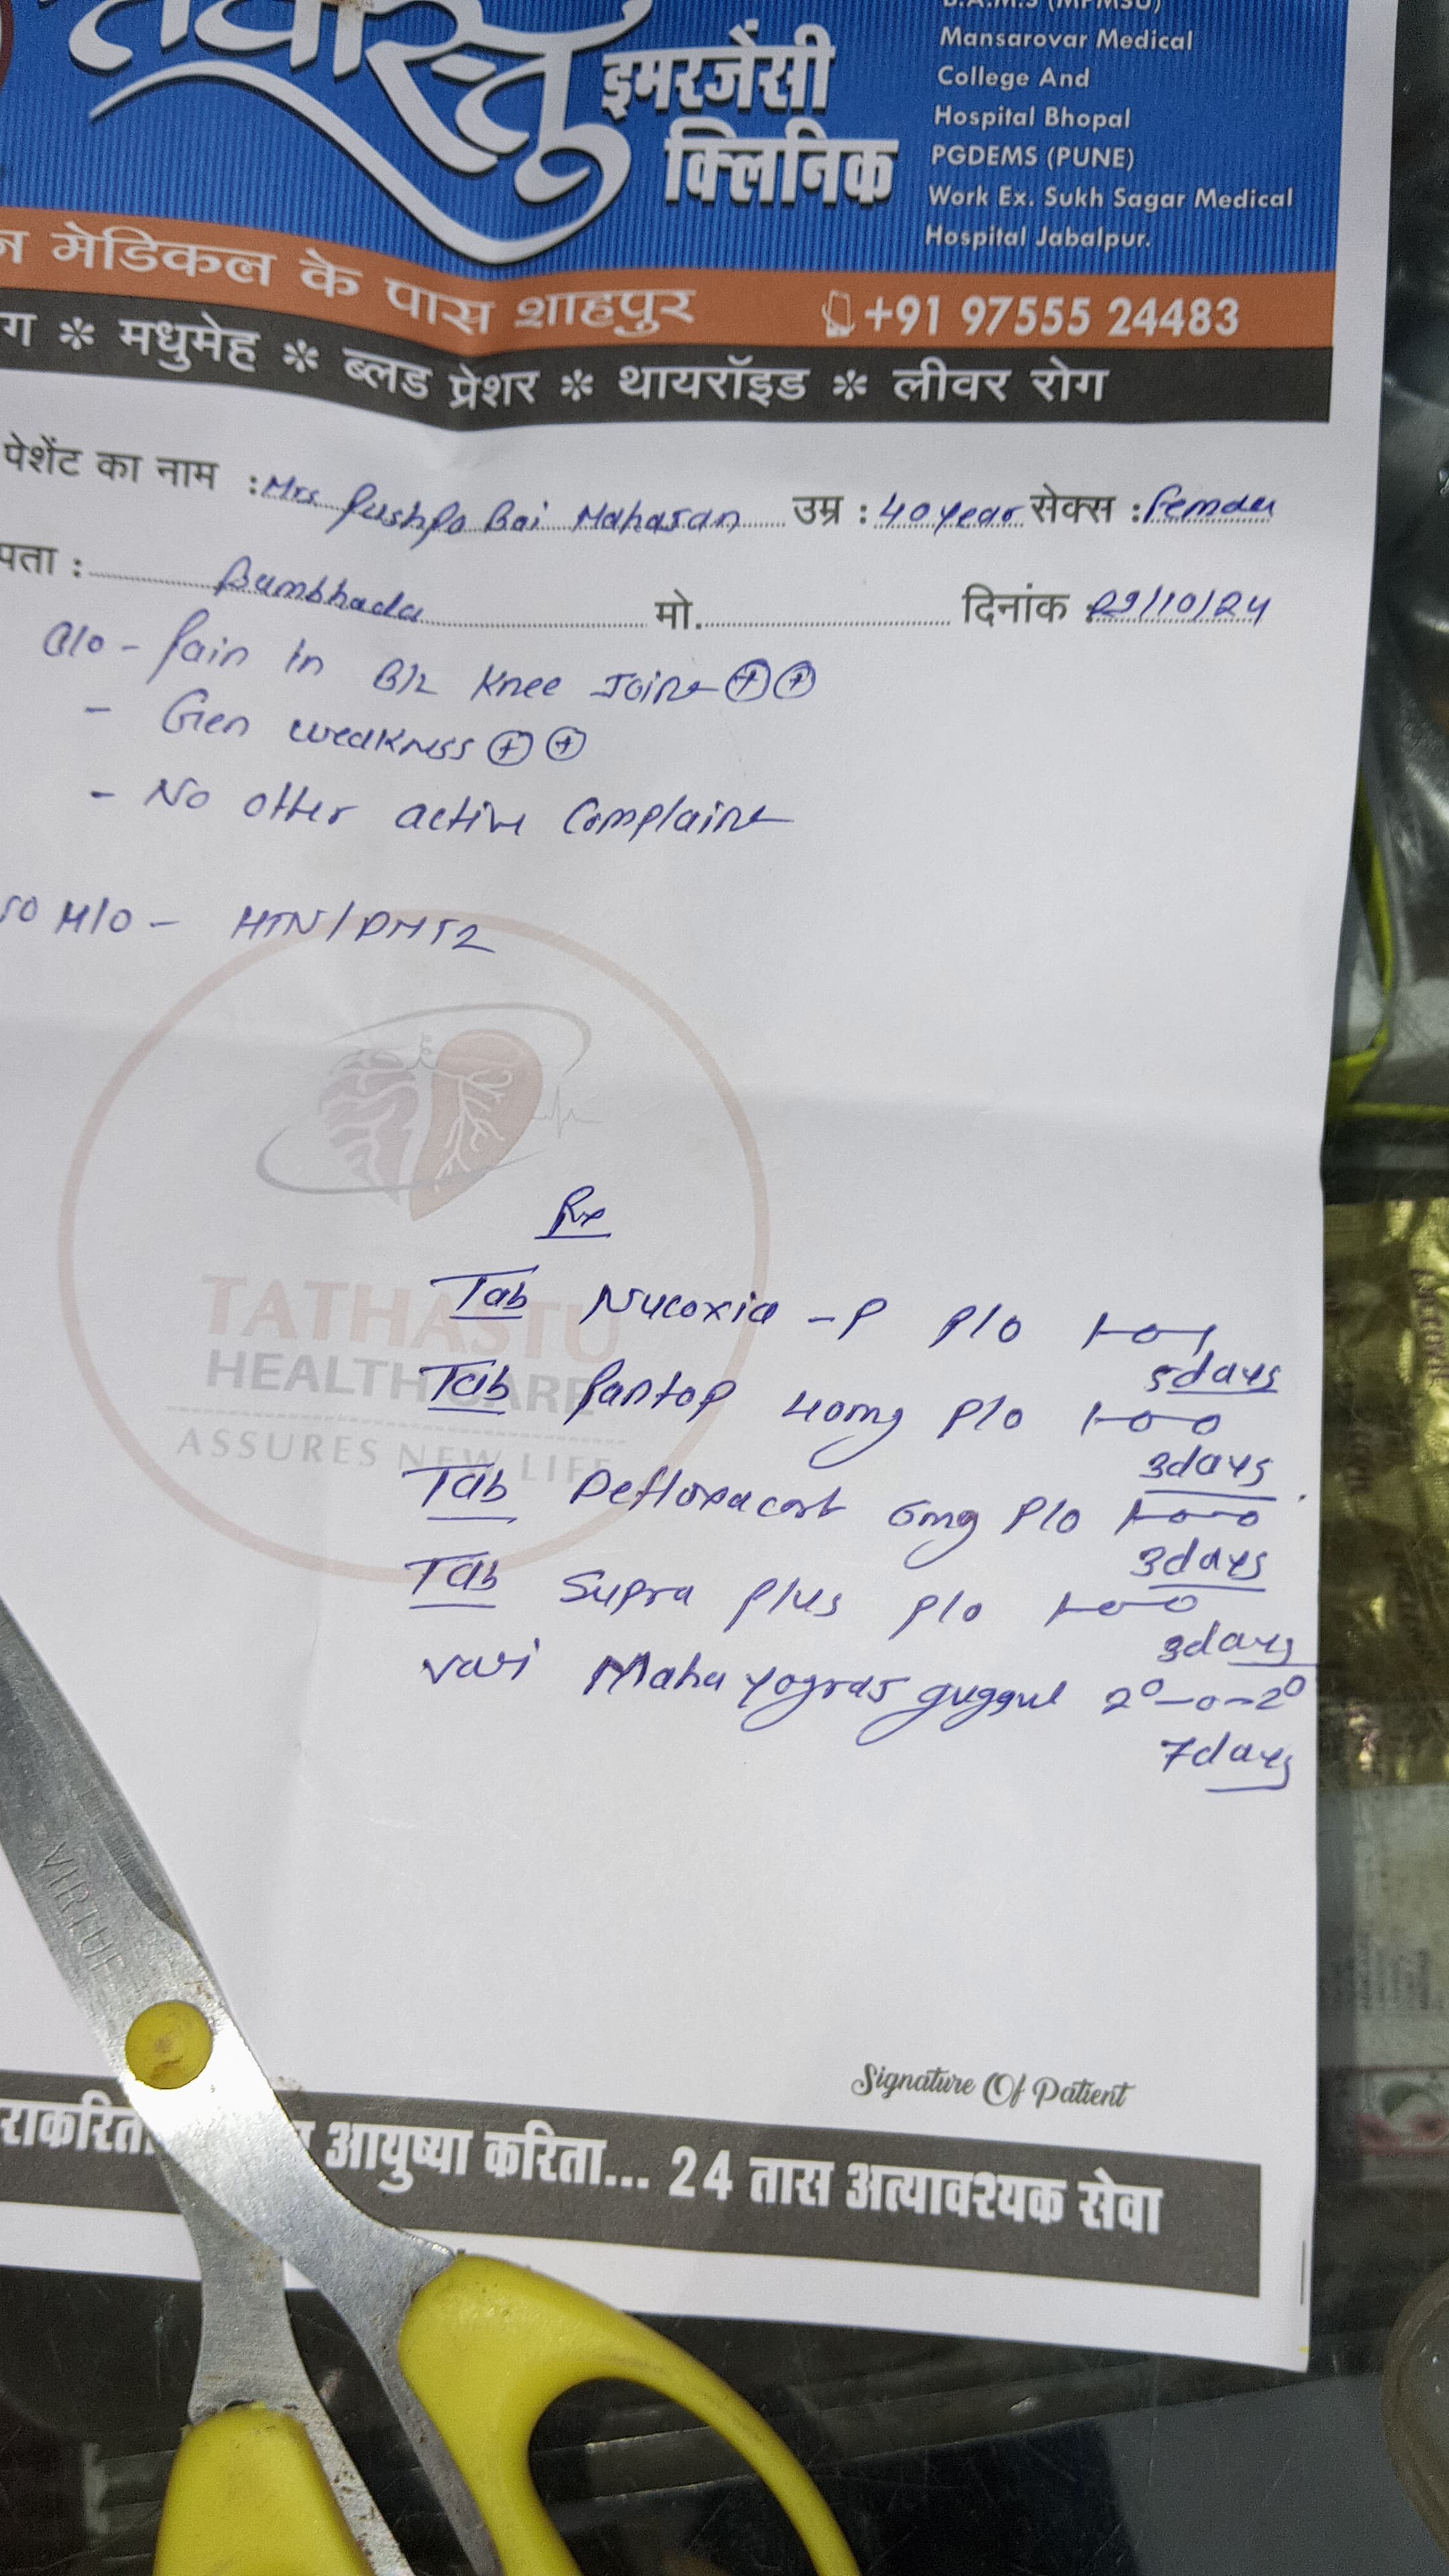 तथास्तु इमरजेंसी क्लिनिक
B.A.M.S (MPMSU)
Mansarovar Medical
College And
Hospital Bhopal
PGDEMS (PUNE)
Work Ex. Sukh Sagar Medical
Hospital Jabalpur.
न मेडिकल के पास शाहपुर +91 97555 24483
ग * मधुमेह * ब्लड प्रेशर * थायरॉइड * लीवर रोग
पेशेंट का नाम : Mrs. Pushpa Bai Mahajan उम्र : 40 year सेक्स : Female
पता : Bambhada मो. दिनांक 29/10/24
C/o - Pain in B/L Knee Joint ⊕⊕
- Gen weakness ⊕⊕
- No other active Complaint
H/O - HTN/DMT2
Rx
Tab Nucoxia -P P/O 1-0-1
5days
Tab Pantop 40mg P/O 1-0-0
3days
Tab Deflozacort 6mg P/O 1-0-0
3days
Tab Supra Plus P/O 1-0-0
3days
Vati Mahayogras guggul 2⁰-0-2⁰
7days
TATHASTU
HEALTHCARE
ASSURES NEW LIFE
VIRTUE
Signature Of Patient
आयुष्या करिता... 24 तास अत्यावश्यक सेवा